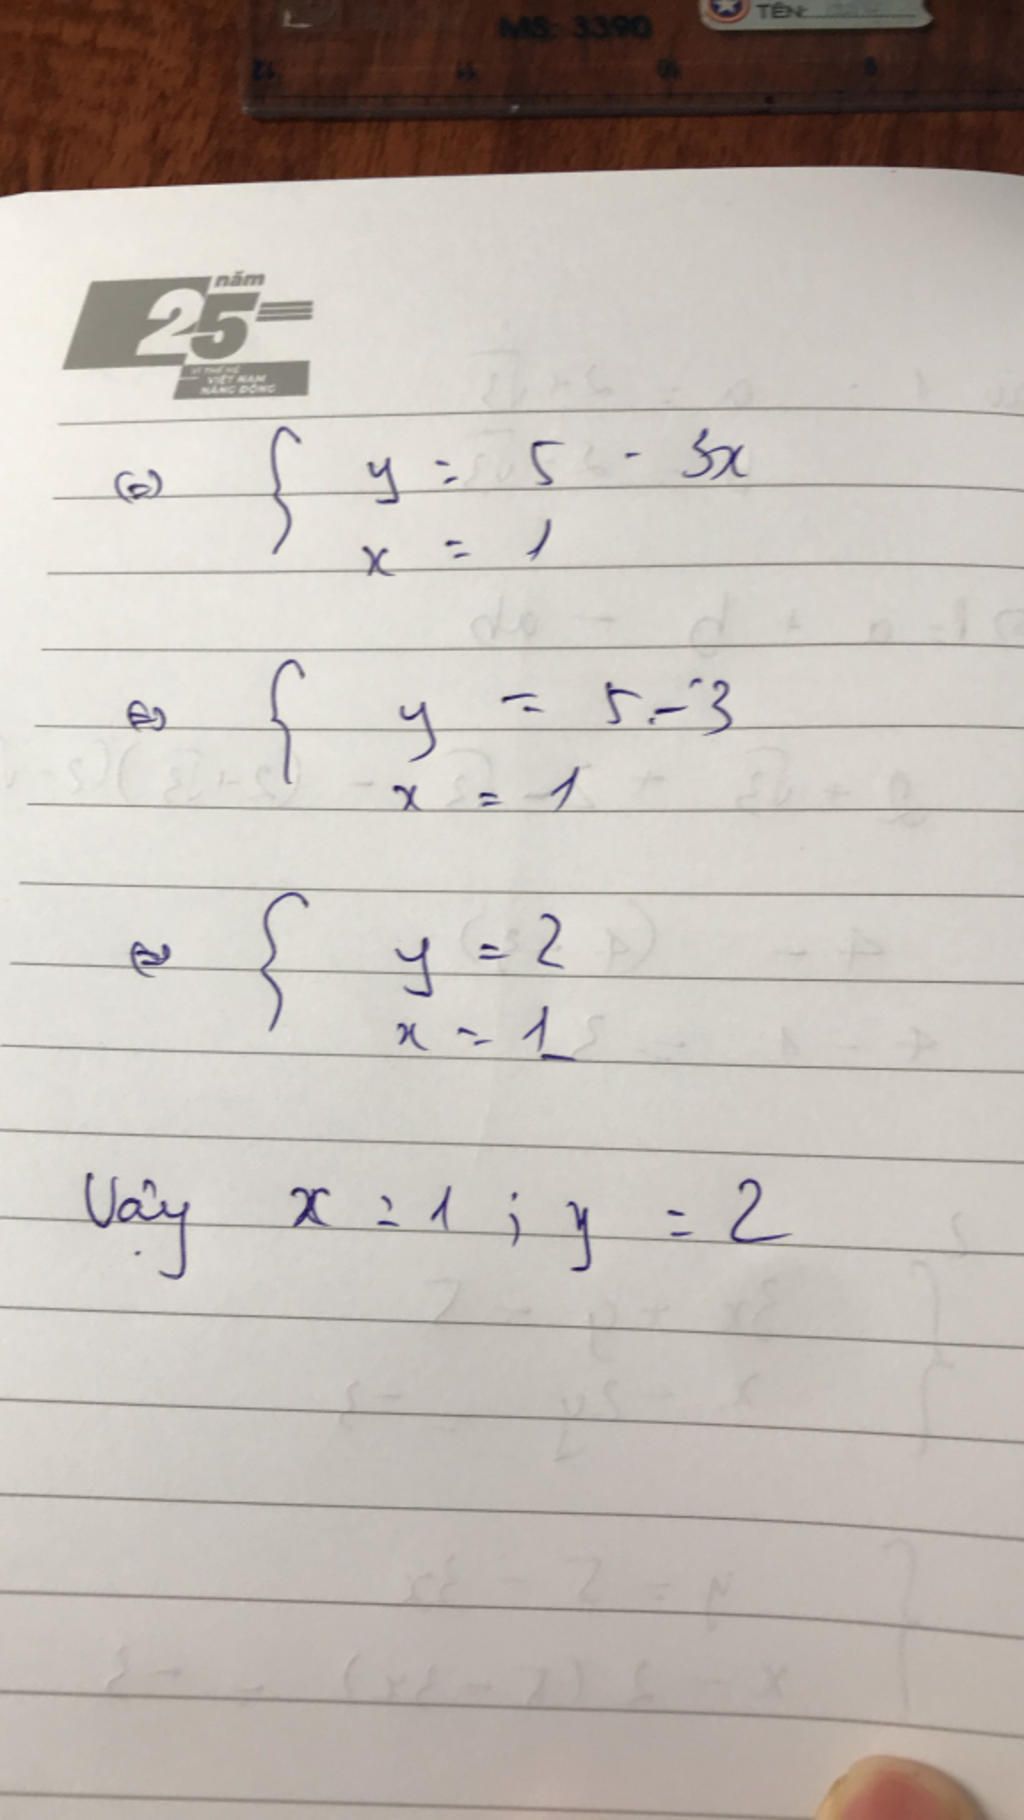 MS: 3390
TÊN:
12 11 10 9
25 năm
VÌ THẾ HỆ
VIỆT NAM
NĂNG ĐỘNG
⇔ { y = 5 - 3x
x = 1
⇔ { y = 5 - 3
x = 1
⇔ { y = 2
x = 1
Vậy x = 1 ; y = 2